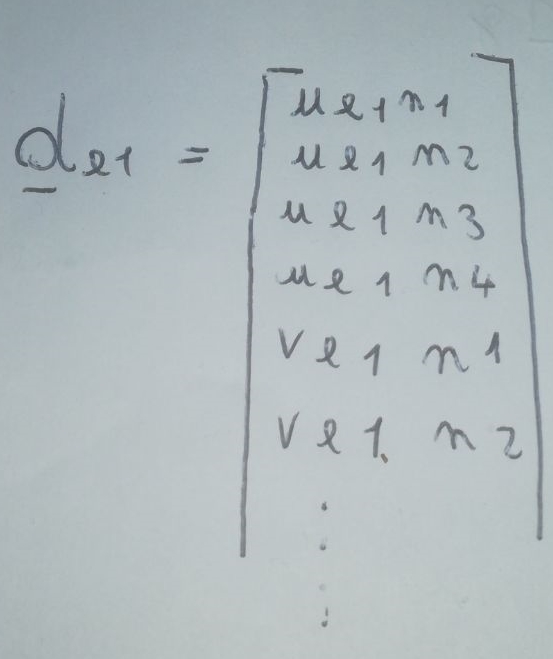 d e1 = u e1 n1
u e1 n2
u e1 n3
u e1 n4
v e1 n1
v e1 n2
⋮